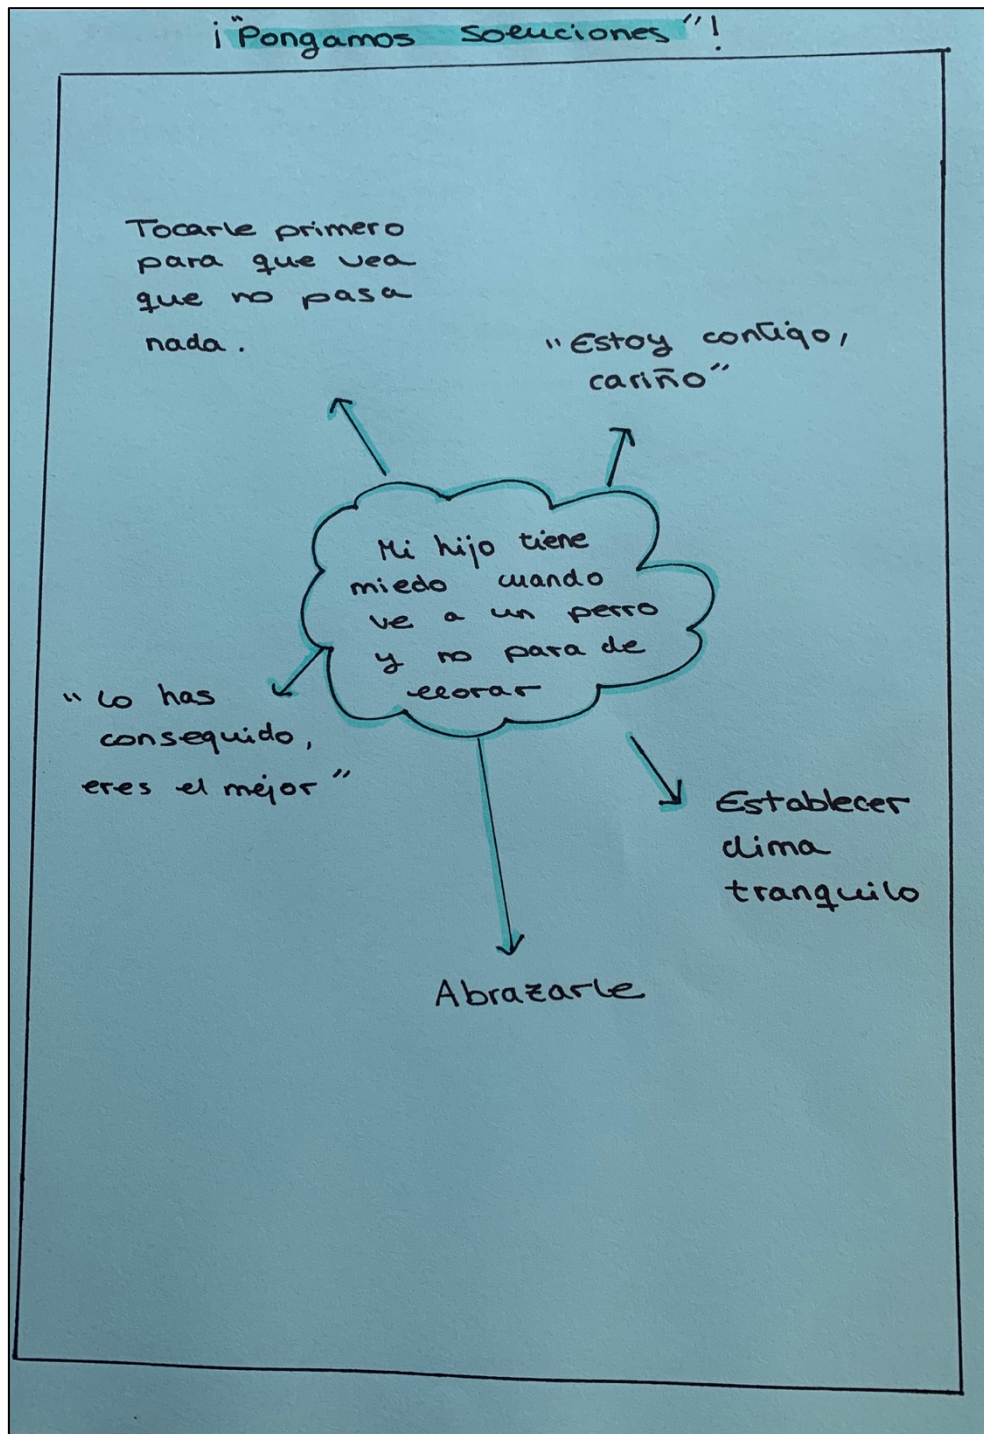 ¡"Pongamos soluciones"!
Tocarle primero
para que vea
que no pasa
nada.
"Estoy contigo,
cariño"
Mi hijo tiene
miedo cuando
ve a un perro
y no para de
llorar
"Lo has
conseguido,
eres el mejor"
Establecer
clima
tranquilo
Abrazarle